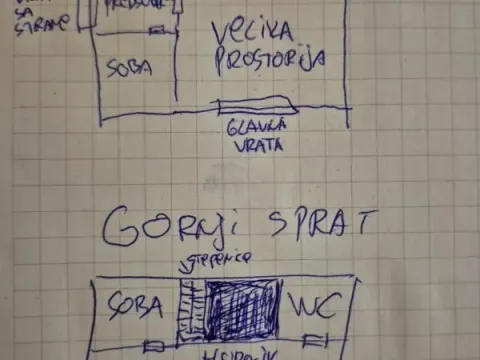 SA
STRANE
SOBA
VELIKA
PROSTORIJA
GLAVNA
VRATA
GORNJI SPRAT
stepenice
SOBA
WC